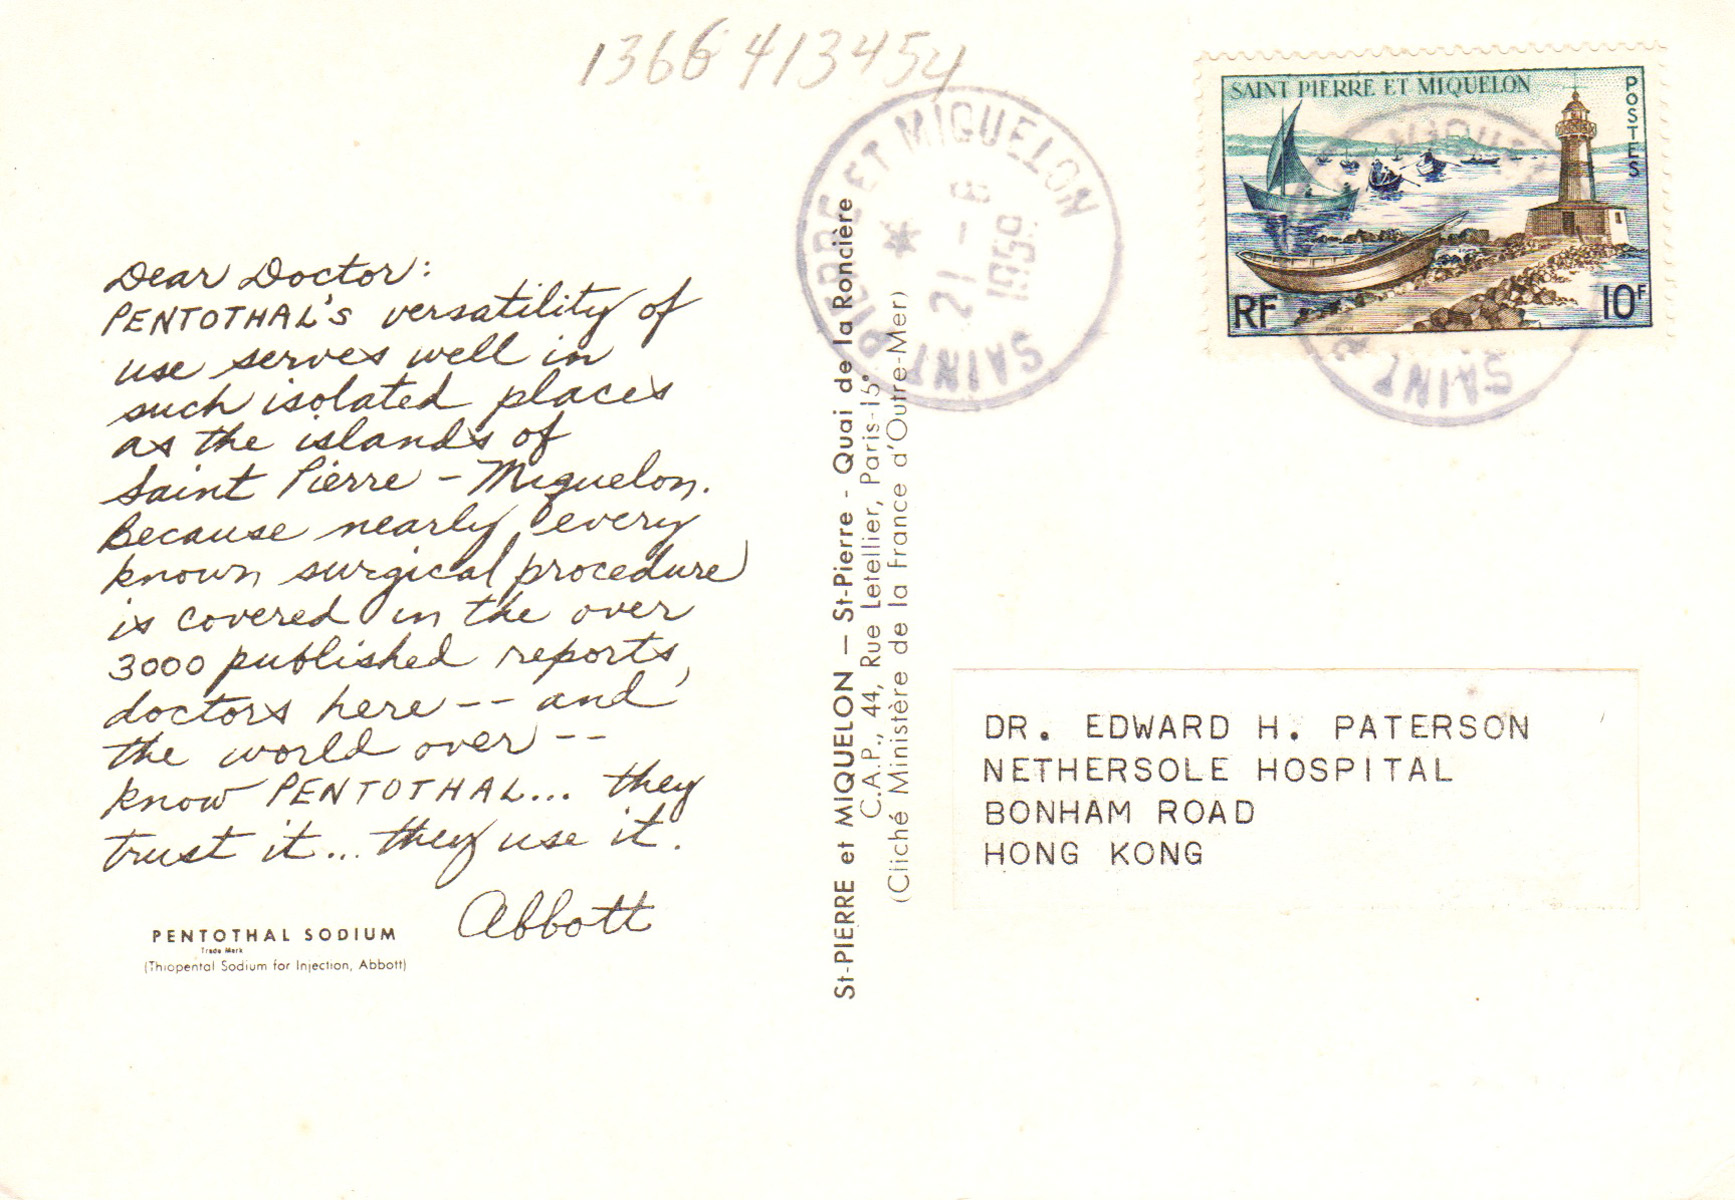 1366 413454
SAINT PIERRE ET MIQUELON
POSTES
RF
10F
SAINT PIERRE ET MIQUELON
21-8
1959
Dear Doctor:
PENTOTHAL'S versatility of
use serves well in
such isolated places
as the islands of
Saint Pierre - Miquelon.
Because nearly every
known surgical procedure
is covered in the over
3000 published reports,
doctors here -- and
the world over --
know PENTOTHAL... they
trust it... they use it.
Abbott
PENTOTHAL SODIUM
Trade Mark
(Thiopental Sodium for Injection, Abbott)
St-PIERRE et MIQUELON — St-Pierre - Quai de la Roncière
C.A.P., 44, Rue Letellier, Paris-15e
(Cliché Ministère de la France d'Outre-Mer)
DR. EDWARD H. PATERSON
NETHERSOLE HOSPITAL
BONHAM ROAD
HONG KONG